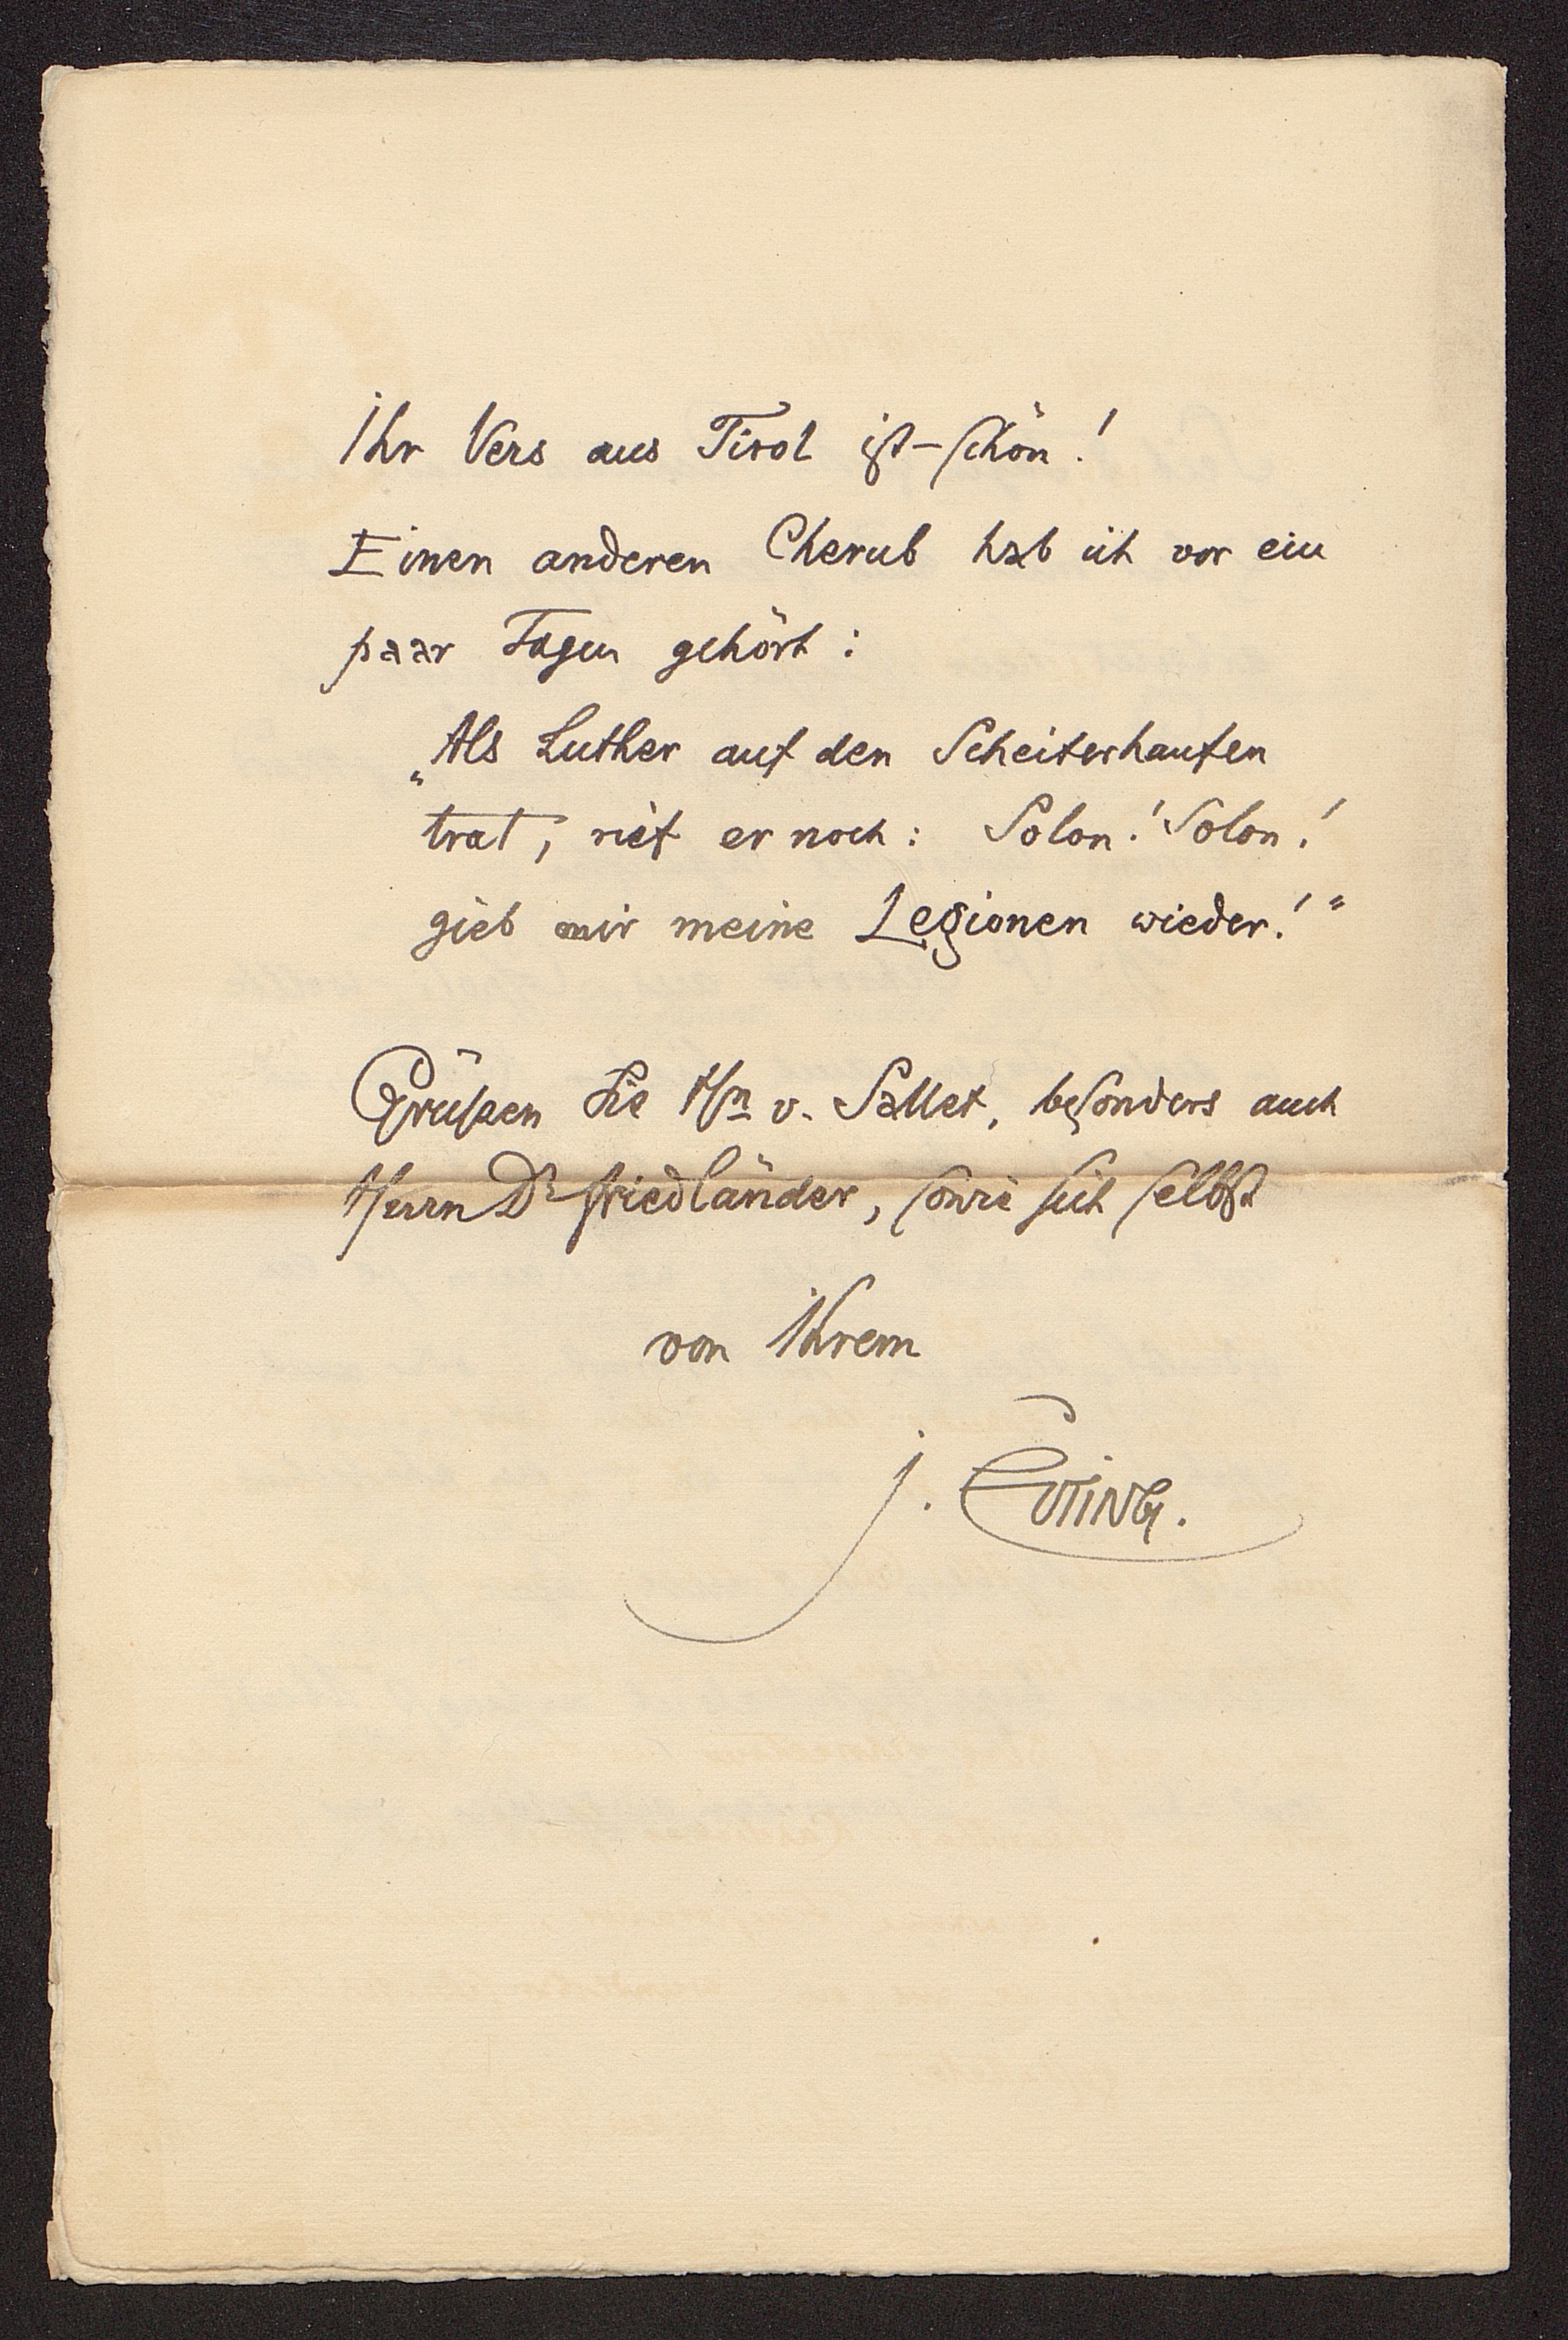 Ihr Vers aus Tirol ist – schön!
Einen anderen Cherub hab ich vor ein
paar Tagen gehört:
„Als Luther auf den Scheiterhaufen
trat, rief er noch: Solon! Solon!
gieb mir meine Legionen wieder!“
Grüßen Sie Hn v. Sallet, besonders auch
Herrn Dr Friedländer, sowie sich selbst
von Ihrem
J. EUTING.